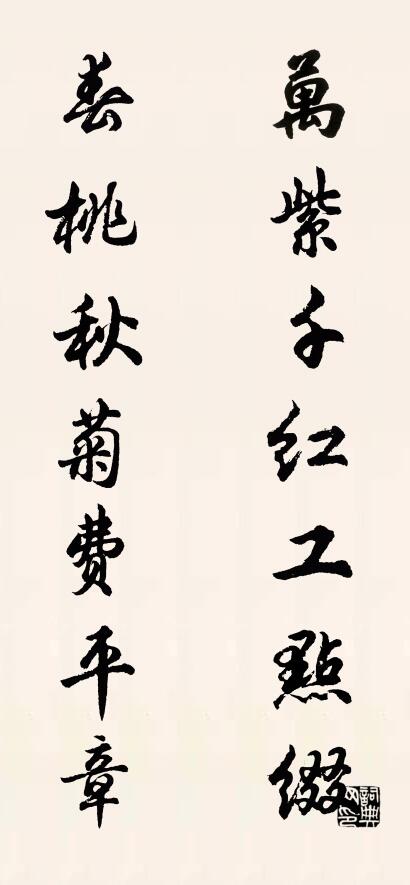 萬紫千紅工點綴
春桃秋菊費平章